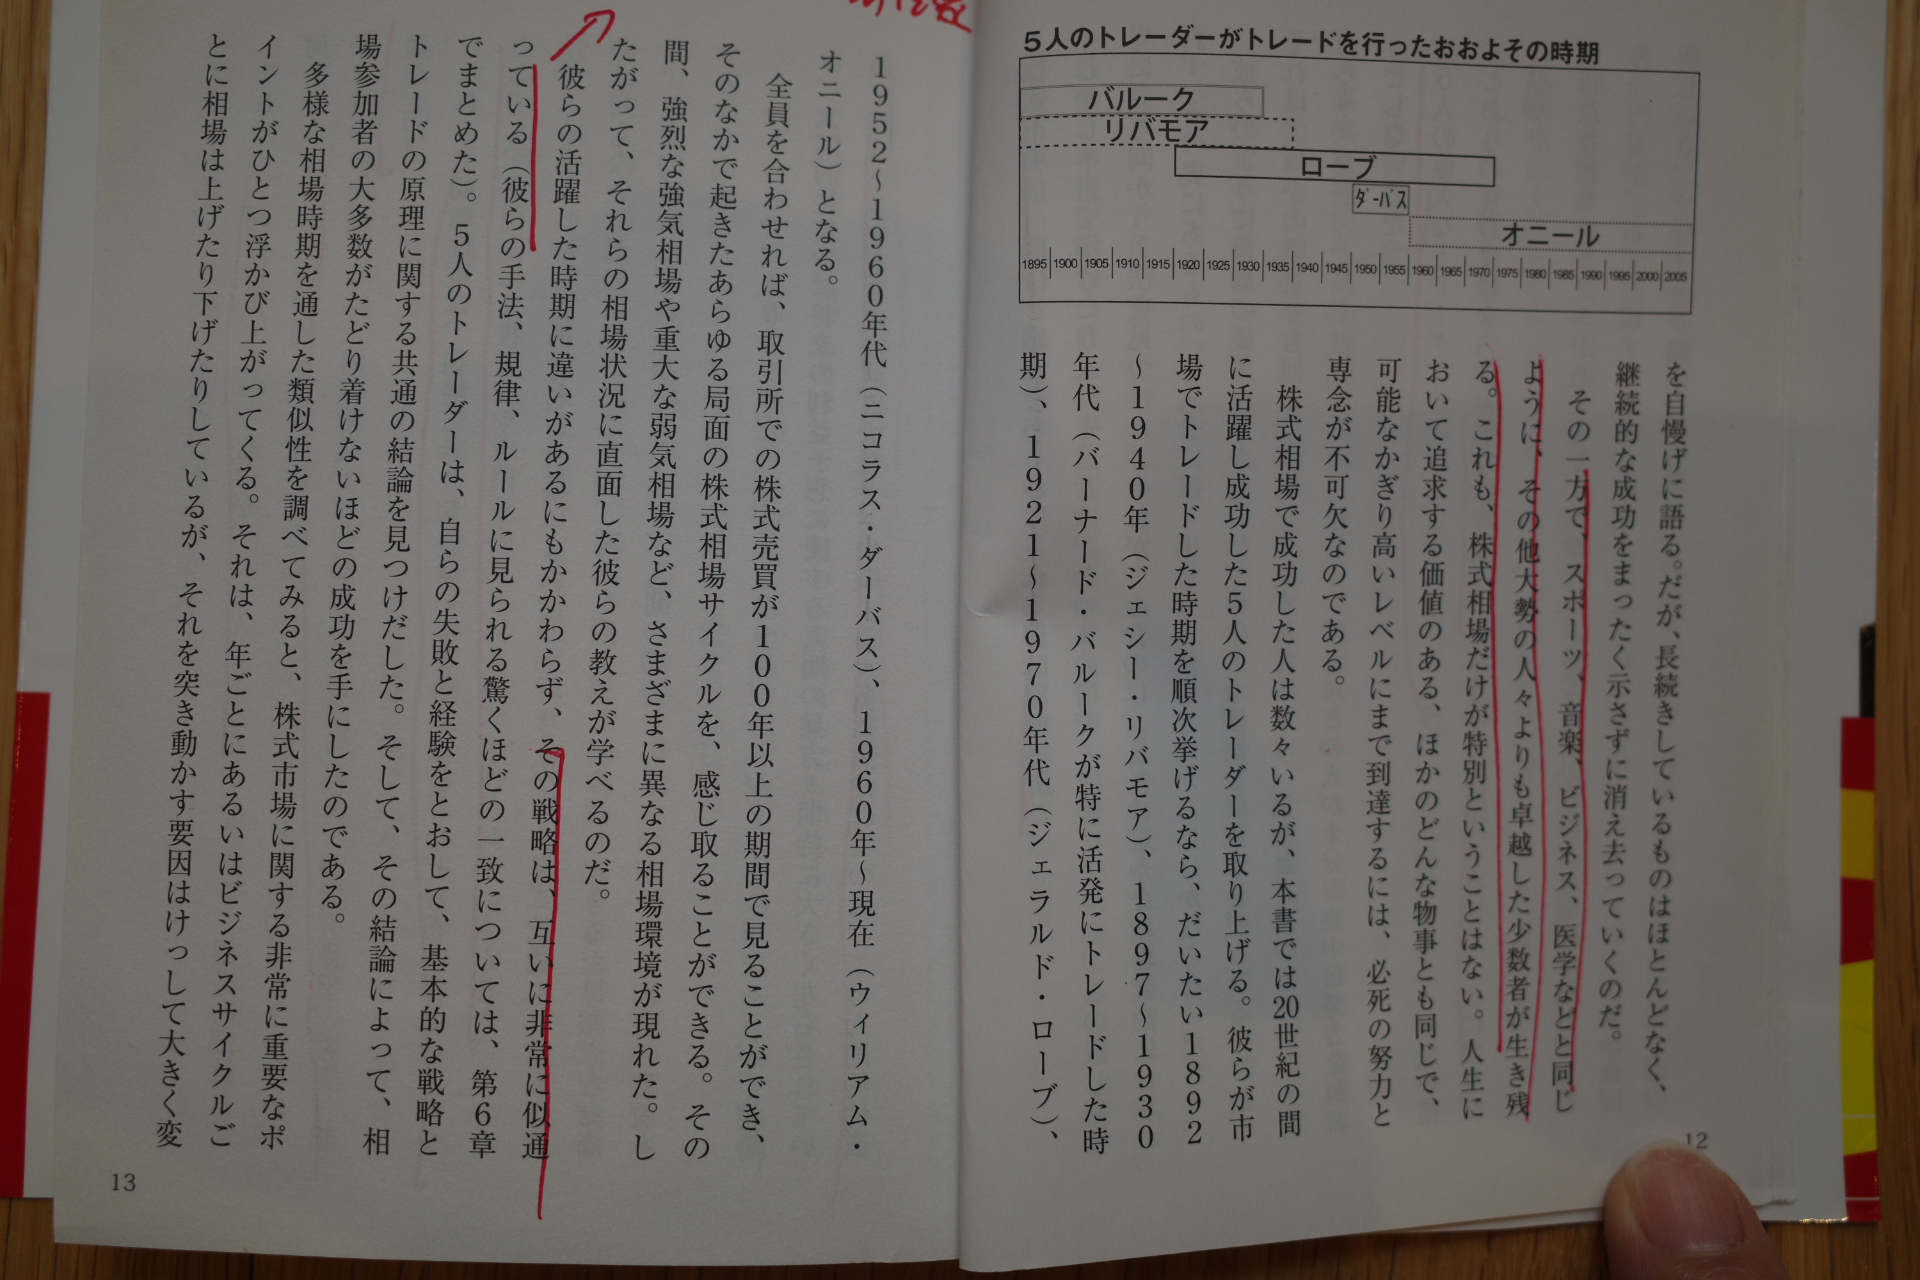 5人のトレーダーがトレードを行ったおおよその時期
バルーク
リバモア
ローブ
ダーバス
オニール
1895 1900 1905 1910 1915 1920 1925 1930 1935 1940 1945 1950 1955 1960 1965 1970 1975 1980 1985 1990 1995 2000 2005
を自慢げに語る。だが、長続きしているものはほとんどなく、
継続的な成功をまったく示さずに消え去っていくのだ。
その一方で、スポーツ、音楽、ビジネス、医学などと同じ
ように、その他大勢の人々よりも卓越した少数者が生き残
る。これも、株式相場だけが特別ということはない。人生に
おいて追求する価値のある、ほかのどんな物事とも同じで、
可能なかぎり高いレベルにまで到達するには、必死の努力と
専念が不可欠なのである。
株式相場で成功した人は数々いるが、本書では20世紀の間
に活躍し成功した5人のトレーダーを取り上げる。彼らが市
場でトレードした時期を順次挙げるなら、だいたい1892
～1940年（ジェシー・リバモア）、1897～1930
年代（バーナード・バルークが特に活発にトレードした時
期）、1921～1970年代（ジェラルド・ローブ）、
12
1952～1960年代（ニコラス・ダーバス）、1960年～現在（ウィリアム・
オニール）となる。
全員を合わせれば、取引所での株式売買が100年以上の期間で見ることができ、
そのなかで起きたあらゆる局面の株式相場サイクルを、感じ取ることができる。その
間、強烈な強気相場や重大な弱気相場など、さまざまに異なる相場環境が現れた。し
たがって、それらの相場状況に直面した彼らの教えが学べるのだ。
彼らの活躍した時期に違いがあるにもかかわらず、その戦略は、互いに非常に似通
っている（彼らの手法、規律、ルールに見られる驚くほどの一致については、第6章
でまとめた）。5人のトレーダーは、自らの失敗と経験をとおして、基本的な戦略と
トレードの原理に関する共通の結論を見つけだした。そして、その結論によって、相
場参加者の大多数がたどり着けないほどの成功を手にしたのである。
多様な相場時期を通した類似性を調べてみると、株式市場に関する非常に重要なポ
イントがひとつ浮かび上がってくる。それは、年ごとにあるいはビジネスサイクルご
とに相場は上げたり下げたりしているが、それを突き動かす要因はけっして大きく変
13